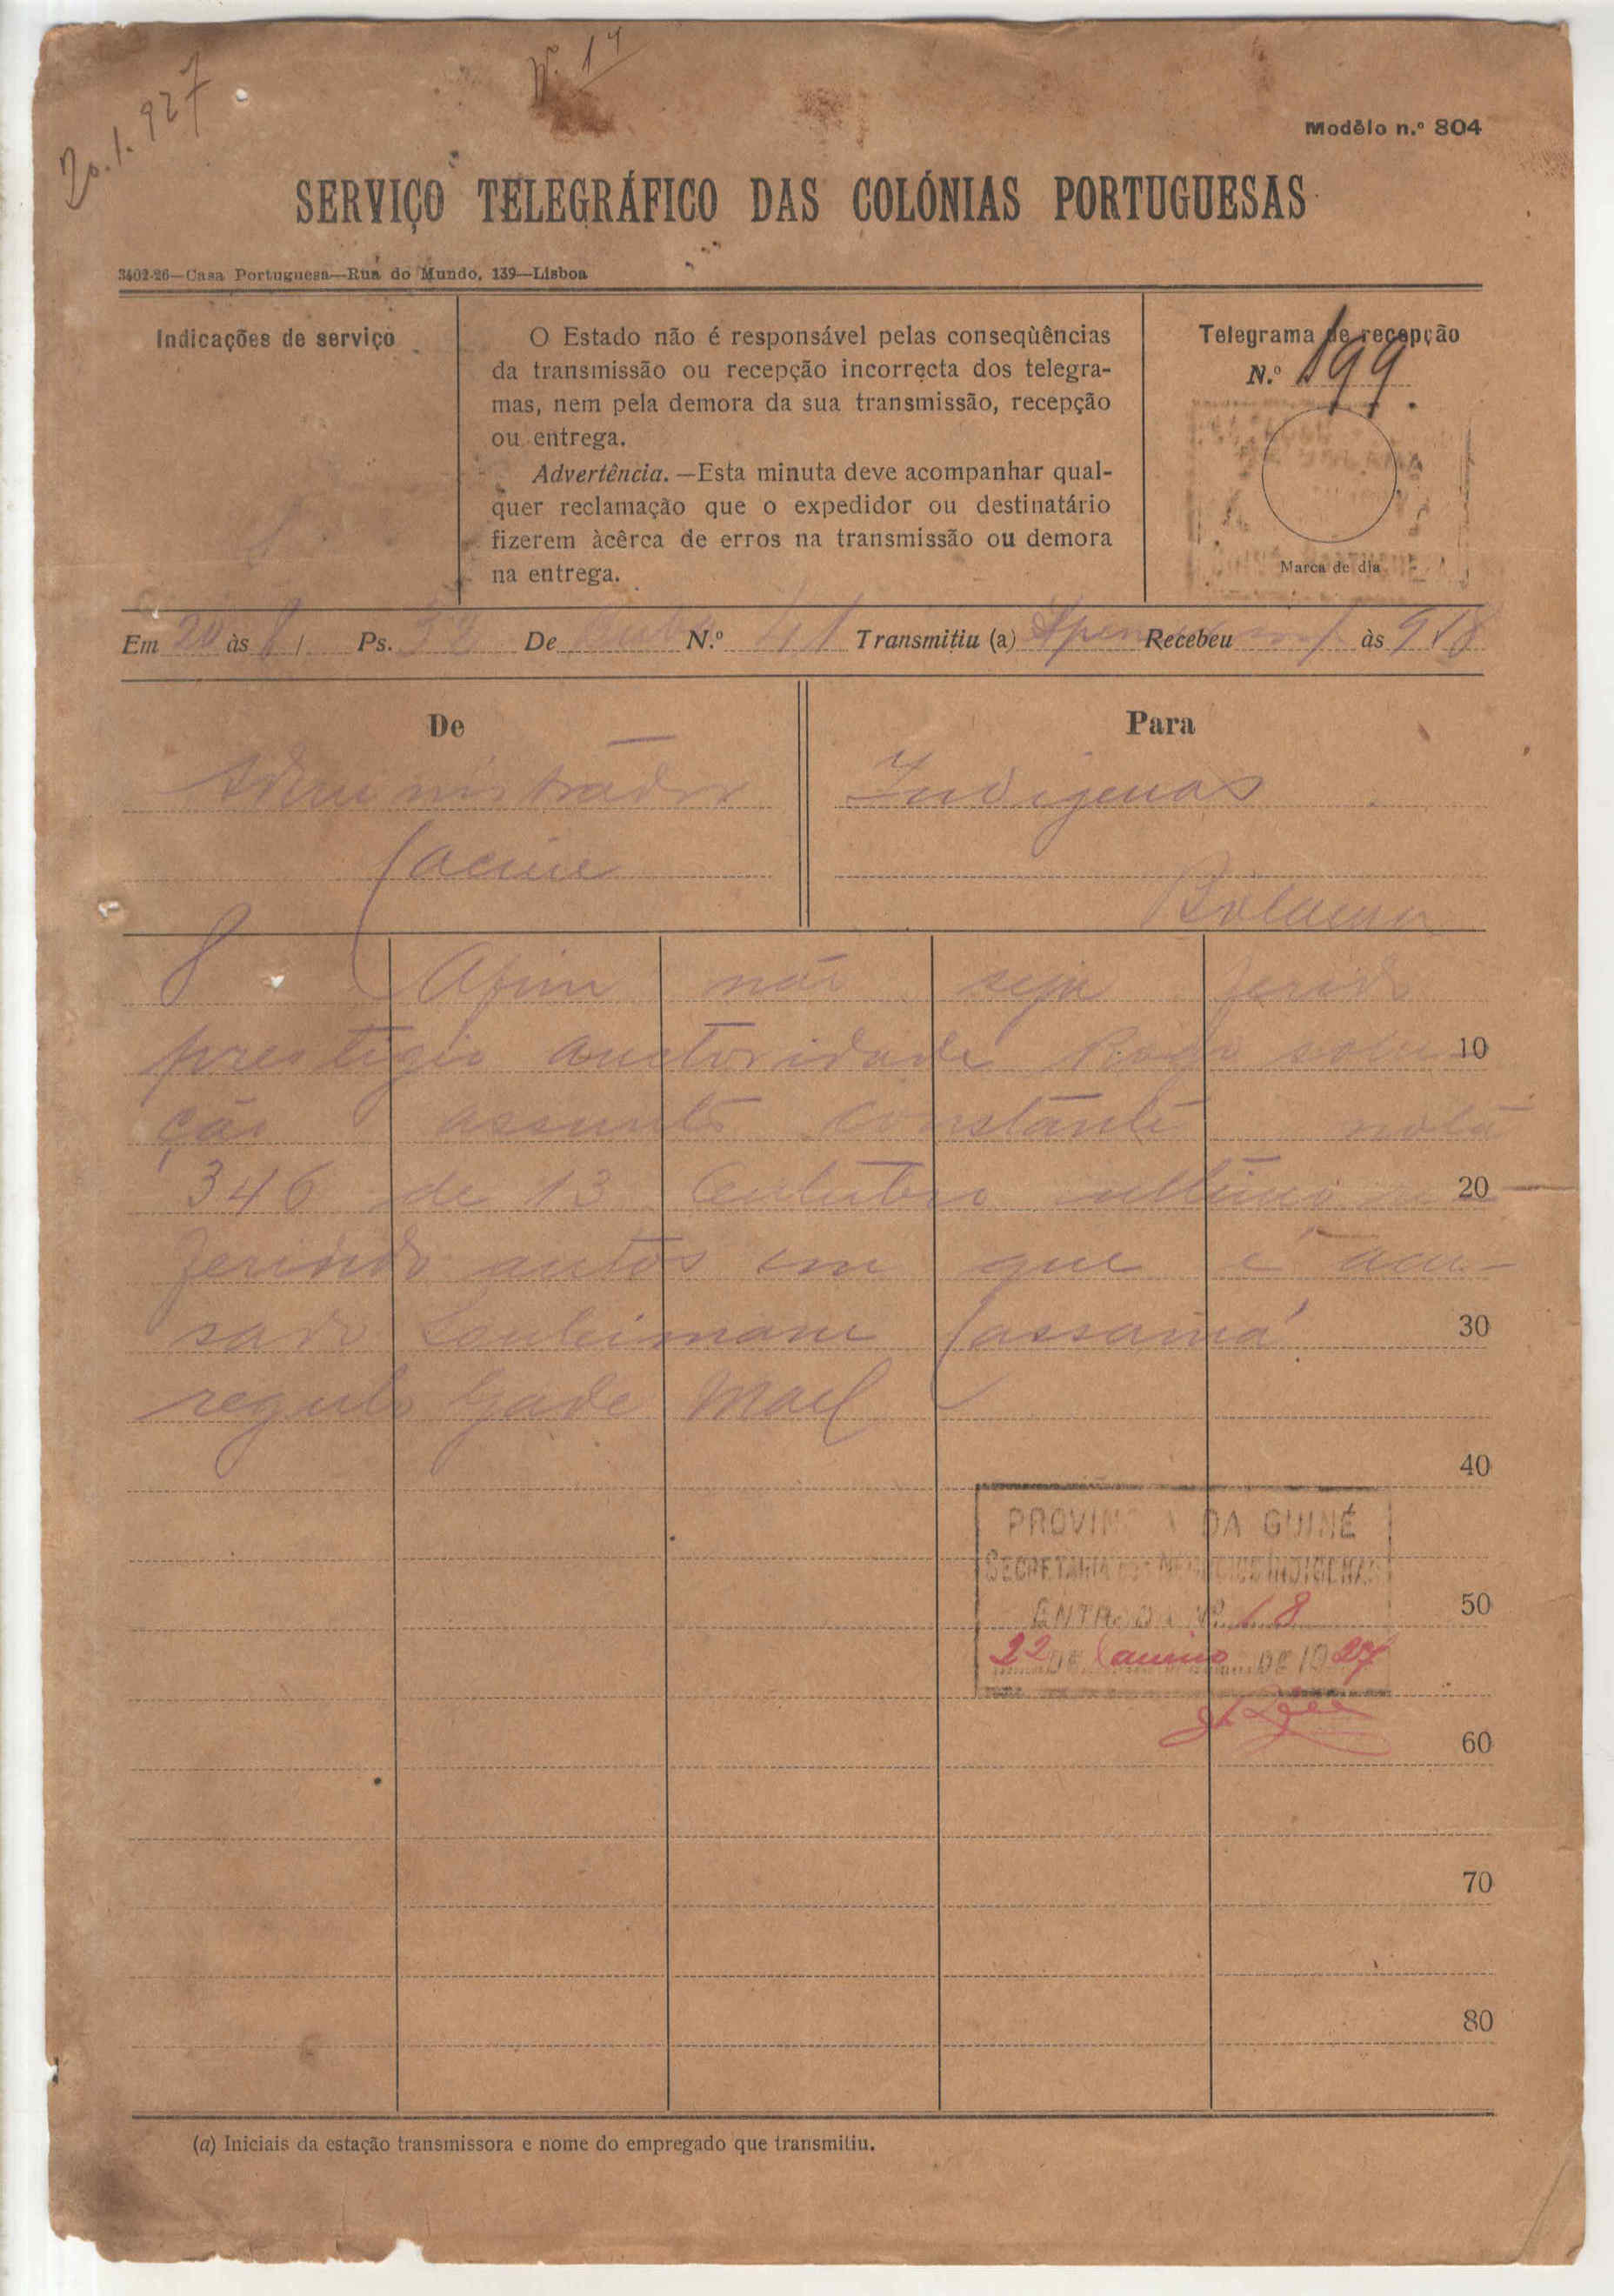 20.1.927
N. 17
Modêlo n.º 804
SERVIÇO TELEGRÁFICO DAS COLÓNIAS PORTUGUESAS
3402-26—Casa Portuguesa—Rua do Mundo, 139—Lisboa
Indicações de serviço
O Estado não é responsável pelas conseqùências
da transmissão ou recepção incorrecta dos telegra-
mas, nem pela demora da sua transmissão, recepção
ou entrega.
Advertência.—Esta minuta deve acompanhar qual-
quer reclamação que o expedidor ou destinatário
fizerem àcêrca de erros na transmissão ou demora
na entrega.
Telegrama de recepção
N.º 199
Marca de dia
Em 20 às Ps. 32 De N.º 41 Transmitiu (a) Recebeu às 9
De
Administrador
Cacine
Para
Indigenas
Bolama
8 Afim não seja ferido
prestigio auctoridade Rogo solu-
ção assunto constante nota
346 de 13 Outubro ultimo re
ferindo autos em que é acu-
sado Souleimane Cassamá
regulo Gade Mael
10
20
30
40
50
60
70
80
PROVINCIA DA GUINÉ
SECRETARIA DOS NEGOCIOS INDIGENAS
ENTRADA Nº 18
22 DE Janeiro DE 1927
(a) Iniciais da estação transmissora e nome do empregado que transmitiu.